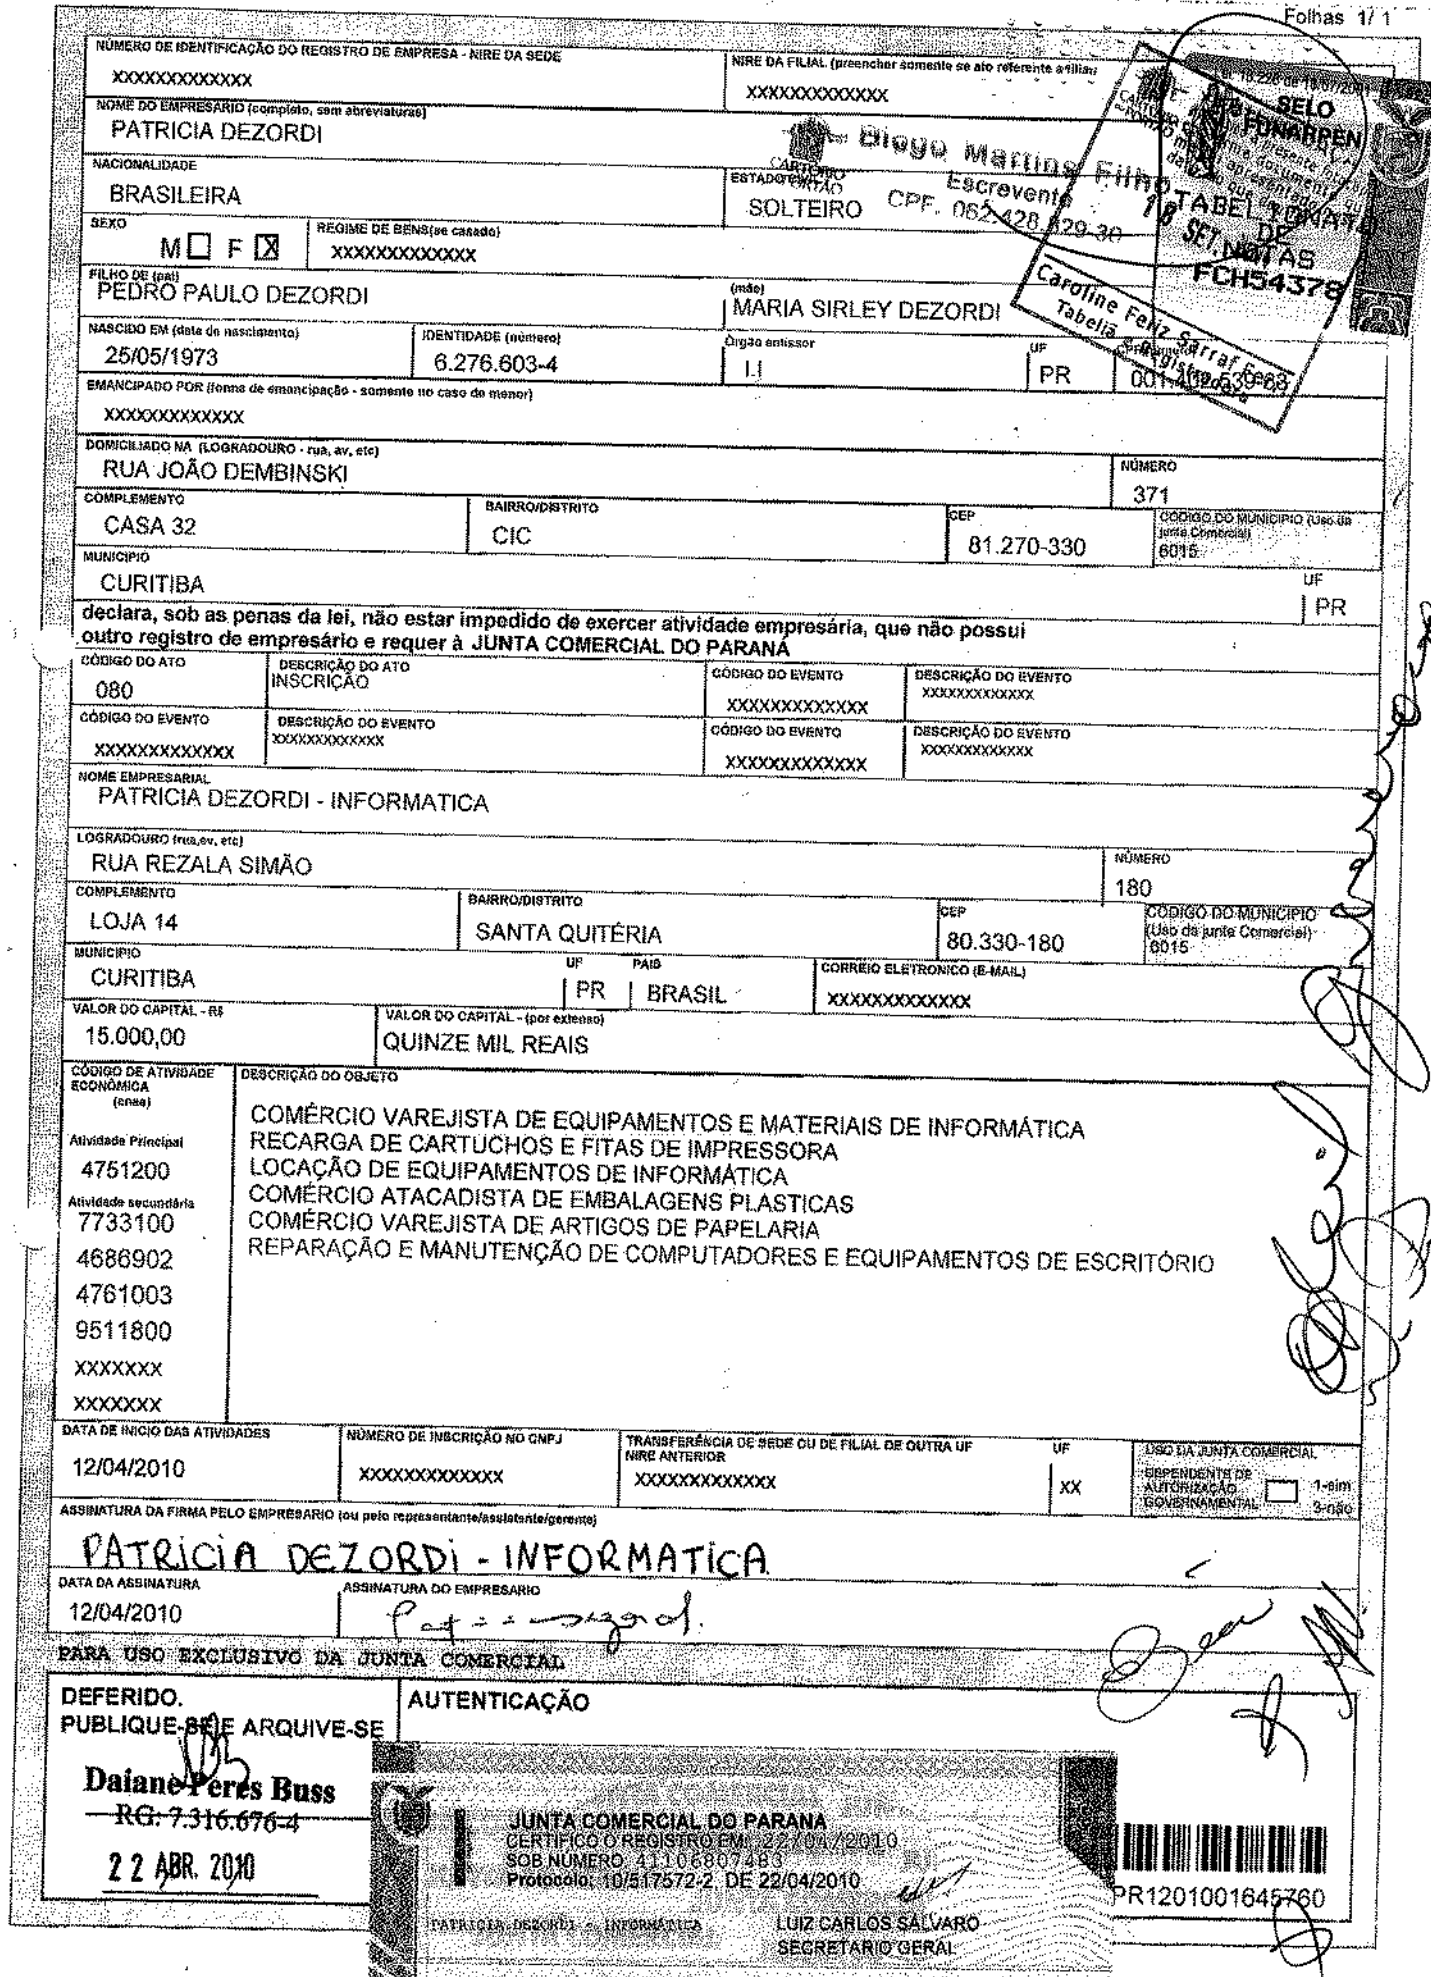 Folhas 1/ 1
NÚMERO DE IDENTIFICAÇÃO DO REGISTRO DE EMPRESA - NIRE DA SEDE
XXXXXXXXXXXXX
NIRE DA FILIAL (preencher somente se ato referente a filial
XXXXXXXXXXXXX
NOME DO EMPRESÁRIO (completo, sem abreviaturas)
PATRICIA DEZORDI
SELO
FUNARPEN
TABELIONATO
DE
NOTAS
FCH54378
Diogo Martins Filho
Escrevente
CPF. 062.428.829-30
18 SET.
Caroline Feliz Sarraf
Tabeliã e Registradora
NACIONALIDADE
BRASILEIRA
ESTADO CIVIL
SOLTEIRO
SEXO
M F X
REGIME DE BENS(se casado)
XXXXXXXXXXXXX
FILHO DE (pai)
PEDRO PAULO DEZORDI
(mãe)
MARIA SIRLEY DEZORDI
NASCIDO EM (data de nascimento)
25/05/1973
IDENTIDADE (número)
6.276.603-4
Órgão emissor
I.I
UF
PR
EMANCIPADO POR (forma de emancipação - somente no caso de menor)
XXXXXXXXXXXXX
DOMICILIADO NA (LOGRADOURO - rua, av, etc)
RUA JOÃO DEMBINSKI
NÚMERO
371
COMPLEMENTO
CASA 32
BAIRRO/DISTRITO
CIC
CEP
81.270-330
CÓDIGO DO MUNICIPIO (Uso da junta Comercial)
6015
MUNICIPIO
CURITIBA
UF
PR
declara, sob as penas da lei, não estar impedido de exercer atividade empresária, que não possui
outro registro de empresário e requer à JUNTA COMERCIAL DO PARANÁ
CÓDIGO DO ATO
080
DESCRIÇÃO DO ATO
INSCRIÇÃO
CÓDIGO DO EVENTO
XXXXXXXXXXXXX
DESCRIÇÃO DO EVENTO
XXXXXXXXXXXXX
CÓDIGO DO EVENTO
XXXXXXXXXXXXX
DESCRIÇÃO DO EVENTO
XXXXXXXXXXXXX
CÓDIGO DO EVENTO
XXXXXXXXXXXXX
DESCRIÇÃO DO EVENTO
XXXXXXXXXXXXX
NOME EMPRESARIAL
PATRICIA DEZORDI - INFORMATICA
LOGRADOURO (rua,av, etc)
RUA REZALA SIMÃO
NÚMERO
180
COMPLEMENTO
LOJA 14
BAIRRO/DISTRITO
SANTA QUITÉRIA
CEP
80.330-180
CÓDIGO DO MUNICIPIO
(Uso da junta Comercial)
6015
MUNICIPIO
CURITIBA
UF
PR
PAIS
BRASIL
CORREIO ELETRONICO (E-MAIL)
XXXXXXXXXXXXX
VALOR DO CAPITAL - R$
15.000,00
VALOR DO CAPITAL - (por extenso)
QUINZE MIL REAIS
CÓDIGO DE ATIVIDADE
ECONÔMICA
(cnae)
DESCRIÇÃO DO OBJETO
Atividade Principal
4751200
Atividade secundária
7733100
4686902
4761003
9511800
XXXXXXX
XXXXXXX
COMÉRCIO VAREJISTA DE EQUIPAMENTOS E MATERIAIS DE INFORMÁTICA
RECARGA DE CARTUCHOS E FITAS DE IMPRESSORA
LOCAÇÃO DE EQUIPAMENTOS DE INFORMÁTICA
COMÉRCIO ATACADISTA DE EMBALAGENS PLASTICAS
COMÉRCIO VAREJISTA DE ARTIGOS DE PAPELARIA
REPARAÇÃO E MANUTENÇÃO DE COMPUTADORES E EQUIPAMENTOS DE ESCRITÓRIO
DATA DE INICIO DAS ATIVIDADES
12/04/2010
NÚMERO DE INSCRIÇÃO NO CNPJ
XXXXXXXXXXXXX
TRANSFERÊNCIA DE SEDE OU DE FILIAL DE OUTRA UF
NIRE ANTERIOR
XXXXXXXXXXXXX
UF
XX
USO DA JUNTA COMERCIAL
DEPENDENTE DE
AUTORIZAÇÃO
GOVERNAMENTAL
1-sim
3-não
ASSINATURA DA FIRMA PELO EMPRESÁRIO (ou pelo representante/assistente/gerente)
PATRICIA DEZORDI - INFORMATICA
DATA DA ASSINATURA
12/04/2010
ASSINATURA DO EMPRESÁRIO
PARA USO EXCLUSIVO DA JUNTA COMERCIAL
DEFERIDO.
PUBLIQUE-SE E ARQUIVE-SE
AUTENTICAÇÃO
Daiane Peres Buss
RG: 7.316.676-4
22 ABR. 2010
JUNTA COMERCIAL DO PARANA
CERTIFICO O REGISTRO EM: 22/04/2010
SOB NÚMERO: 41106807483
Protocolo: 10/517572-2, DE 22/04/2010
PATRICIA DEZORDI - INFORMÁTICA
LUIZ CARLOS SALVARO
SECRETARIO GERAL
PR1201001645760